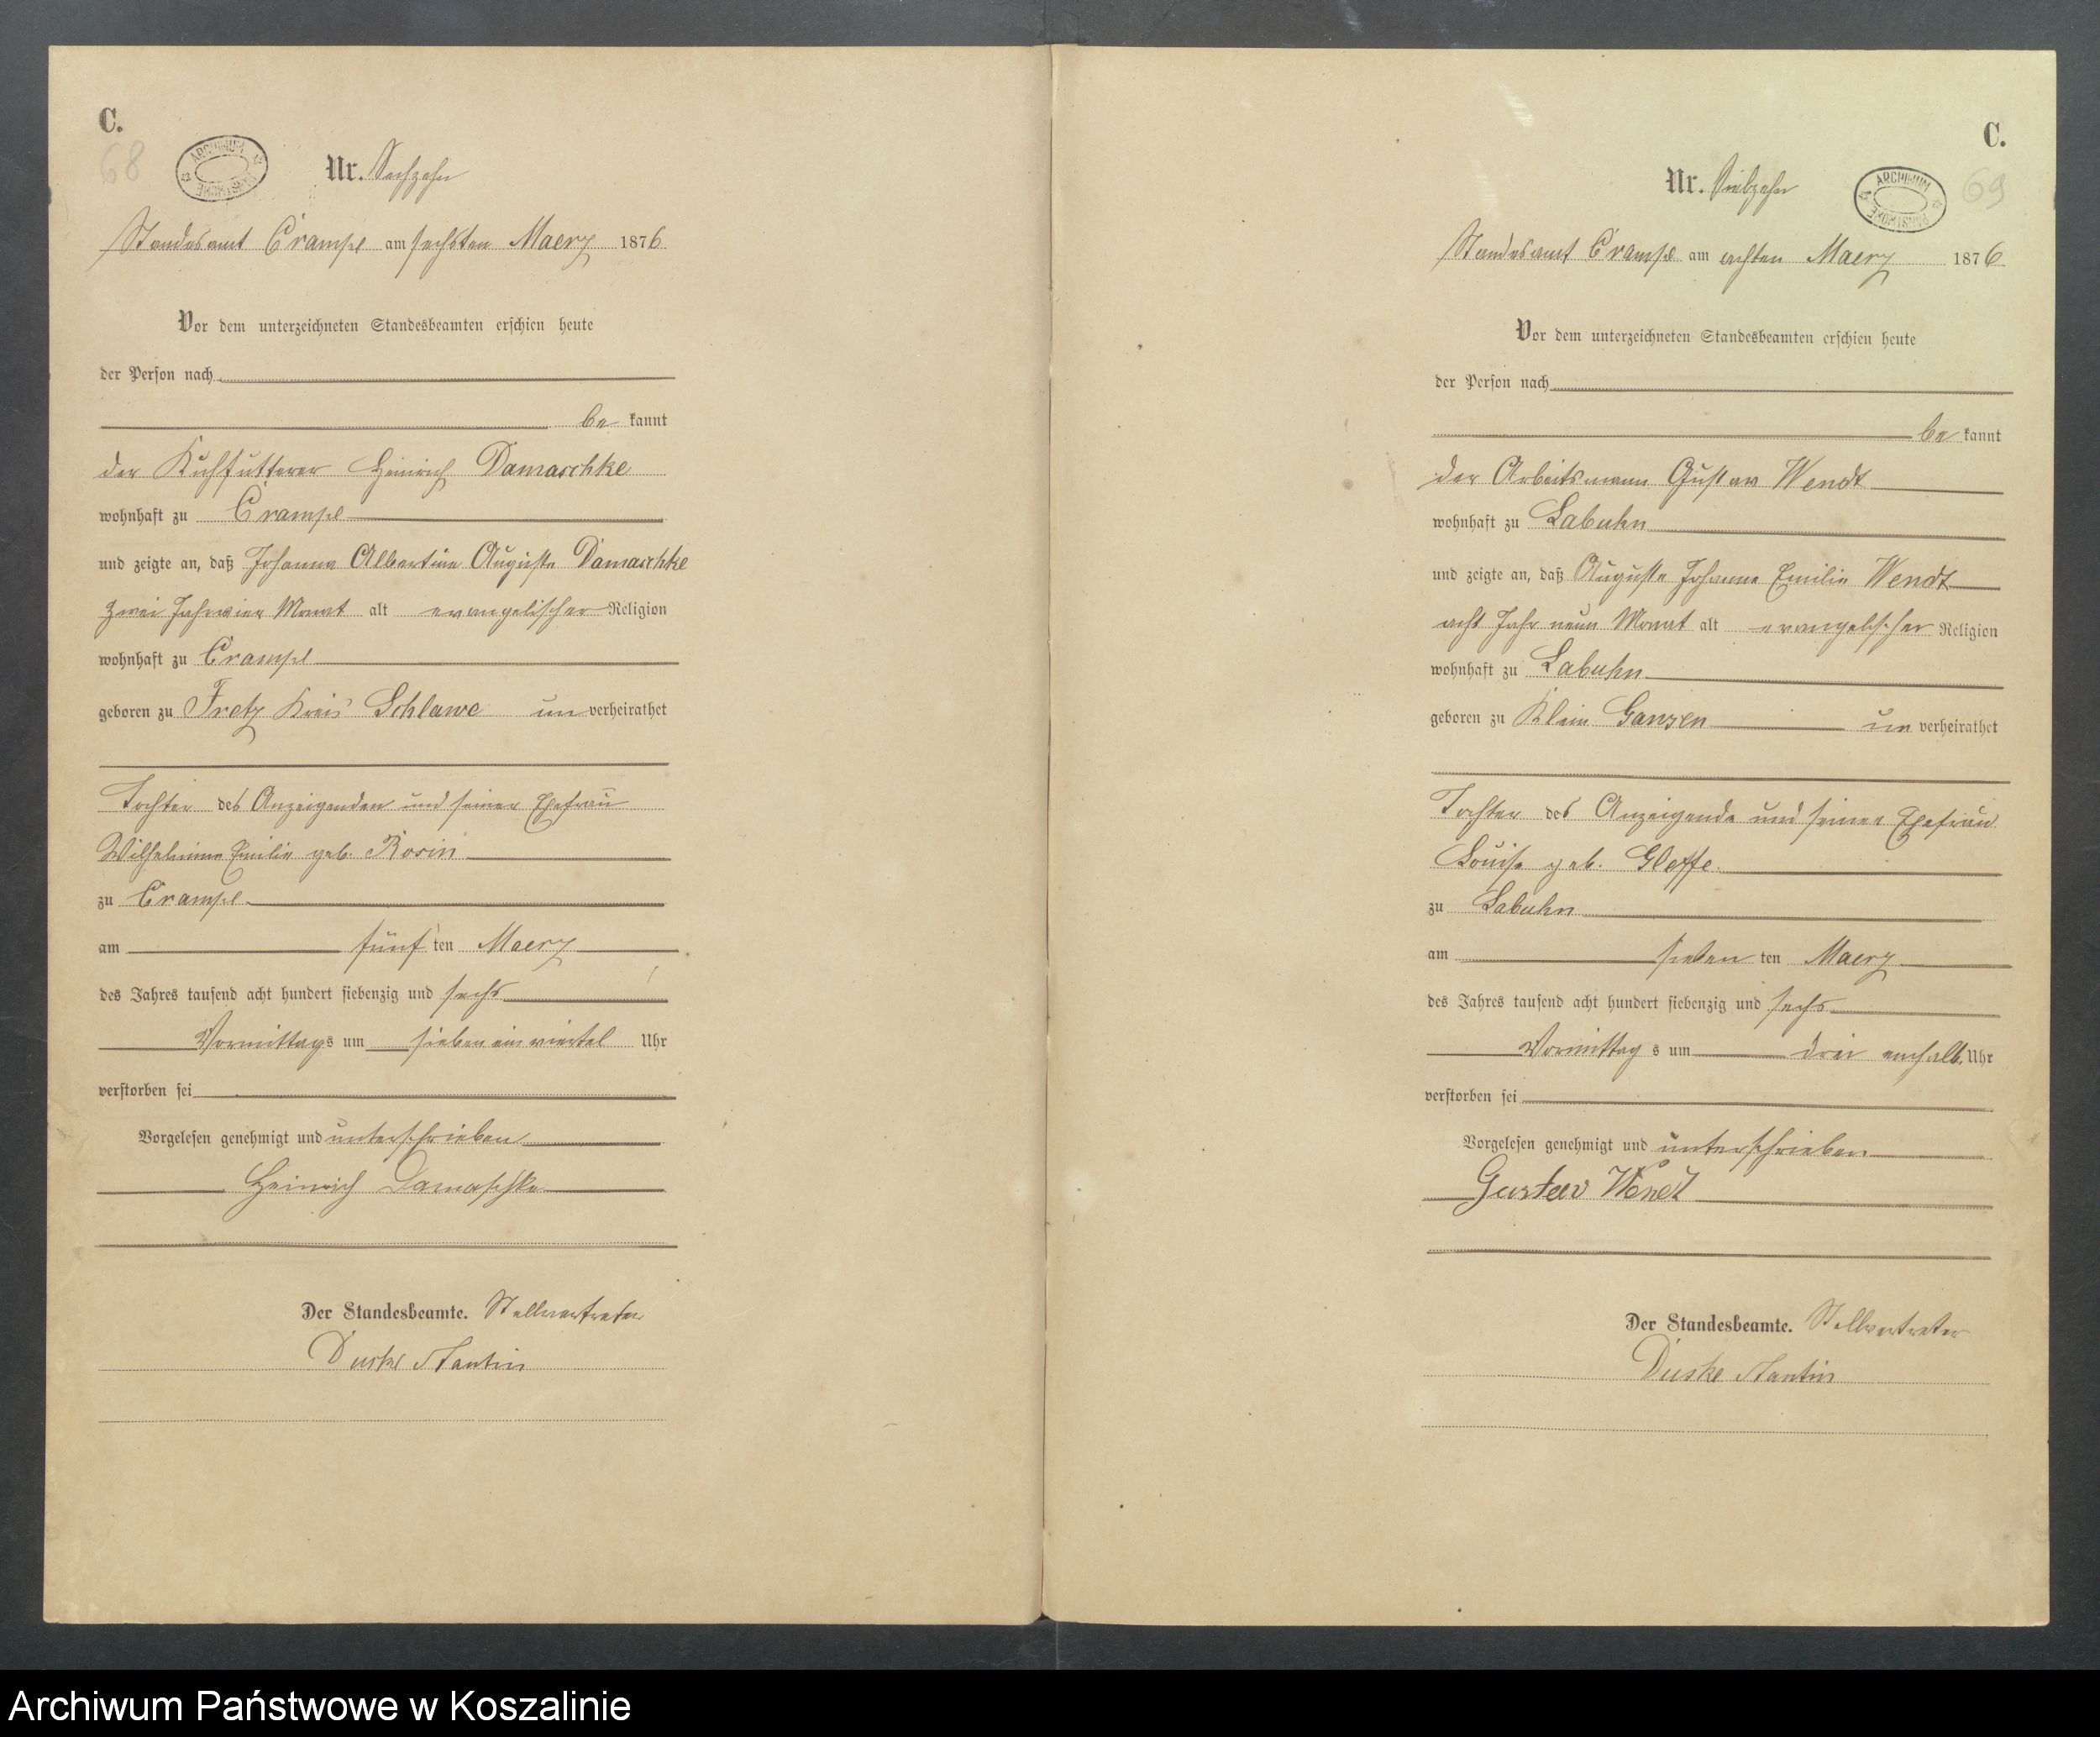 C.
68
ARCHIWUM PAŃSTWOWE
Nr. Sechzehn
Standesamt Crampe am sechsten Maerz 1876
Vor dem unterzeichneten Standesbeamten erschien heute
der Person nach
be kannt
der Kuhfutterer Heinrich Damaschke
wohnhaft zu Crampe
und zeigte an, daß Johanne Albertine Auguste Damaschke
zwei Jahr vier Monat alt evangelischer Religion
wohnhaft zu Crampe
geboren zu Fretz Kreis Schlawe un verheirathet
Tochter des Anzeigenden und seiner Ehefrau
Wilhelmine Emilie geb. Rosin
zu Crampe
am fünf ten Maerz
des Jahres tausend acht hundert siebenzig und sechs
Vormittags um sieben ein viertel Uhr
verstorben sei
Vorgelesen genehmigt und unterschrieben
Heinrich Damaschke
Der Standesbeamte. Stellvertreter
Duske
C.
69
ARCHIWUM PAŃSTWOWE
Nr. Siebzehn
Standesamt Crampe am achten Maerz 1876
Vor dem unterzeichneten Standesbeamten erschien heute
der Person nach
be kannt
der Arbeitsmann Gustav Wendt
wohnhaft zu Labuhn
und zeigte an, daß Auguste Johanne Emilie Wendt
acht Jahr neun Monat alt evangelischer Religion
wohnhaft zu Labuhn
geboren zu Klein Gansen un verheirathet
Tochter des Anzeigende und seiner Ehefrau
Louise geb. Gleffe
zu Labuhn
am sieben ten Maerz
des Jahres tausend acht hundert siebenzig und sechs
Vormittag s um drei einhalb Uhr
verstorben sei
Vorgelesen genehmigt und unterschrieben
Gustav Wendt
Der Standesbeamte. Stellvertreter
Duske
Archiwum Państwowe w Koszalinie